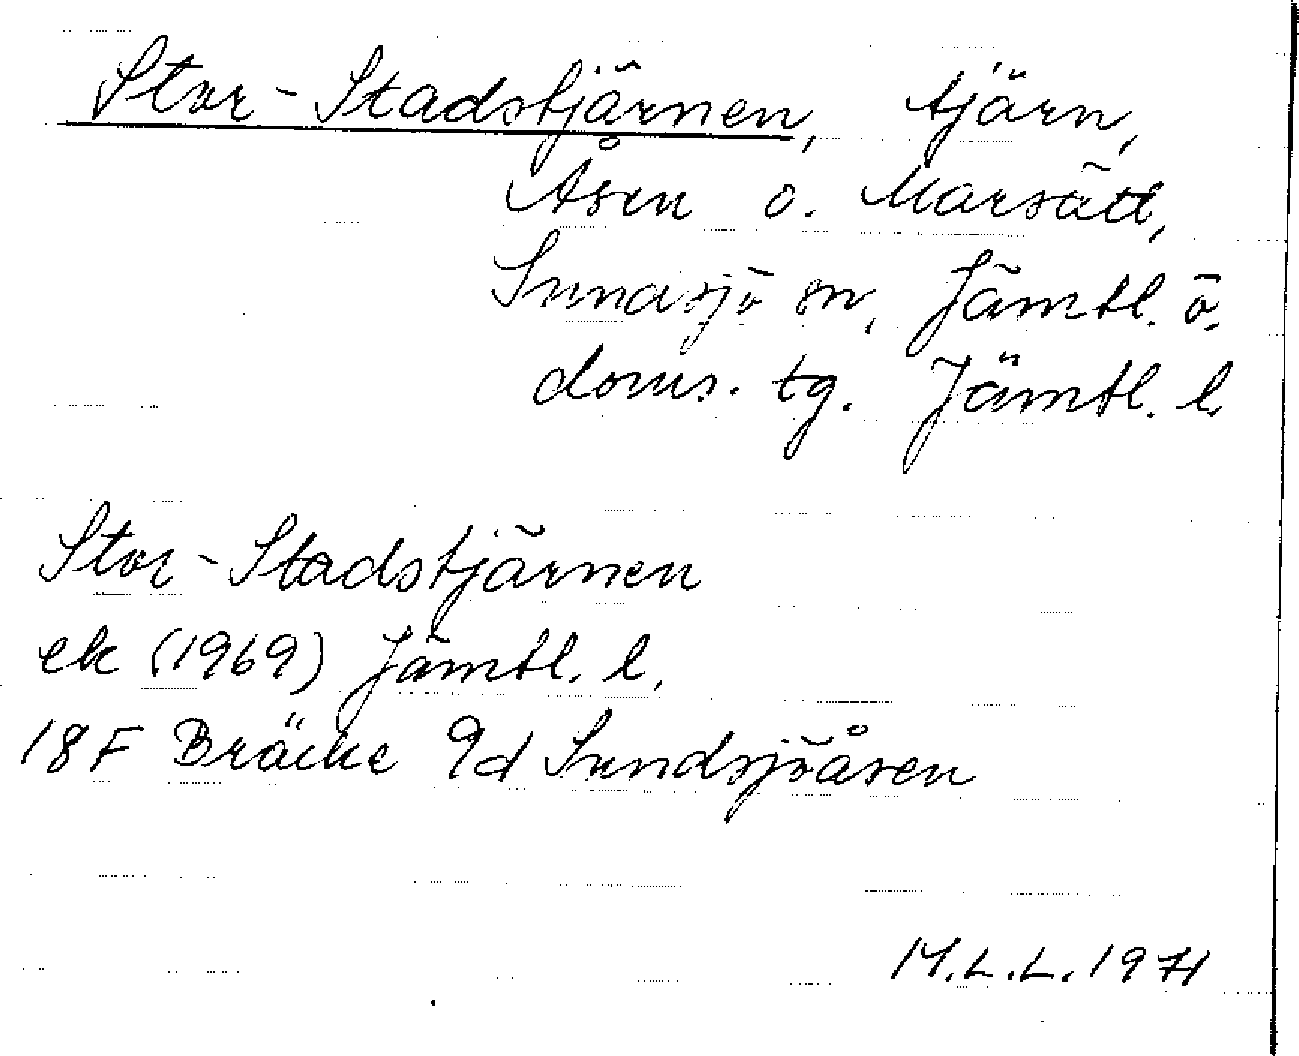 Stor-Stadstjärnen, tjärn,
Åsen o. Marsätt,
Sundsjö sn, Jämtl. ö.
doms. tg. Jämtl. l.
Stor-Stadstjärnen
ek (1969) Jämtl. l.
18F Bräcke 9d Sundsjöåsen
M.L.L. 1971